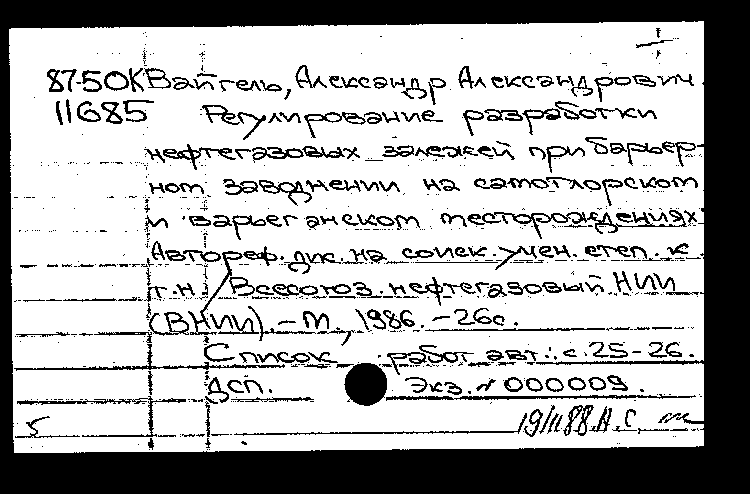 87-50К Вайгель, Александр Александрович.
11685 Регулирование разработки
нефтегазовых залежей при барьер-
ном заводнении на самотлорском
и варьеганском месторождениях:
Автореф. дис. на соиск. учен. степ. к.
т.н. / Всесоюз. нефтегазовый НИИ
(ВНИИ). - М., 1986. - 26с.
Список работ авт.: с. 25-26.
Дсп. Экз. № 000009.
5 19/II 88. А.С.